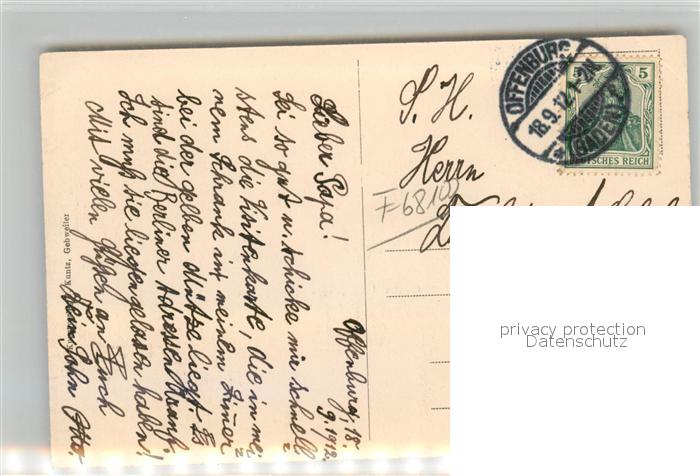 Offenburg, 18.
9. 1912.
Lieber Papa!
Sei so gut u. schicke mir schnell
stens die Visitenkarte, die in mei
nem Schrank in meinem Zimer
bei der gelben Mütze liegt. Es
sind die Berliner Adressen drauf
Ich muß sie liegen gelassen haben!
Mit vielen Grüßen an Euch
Dein Sohn Otto.
Kuntz, Gebweiler
S. H.
Herrn
F6810
OFFENBURG
18.9.12.
(BADEN)
5 5
DEUTSCHES REICH
privacy protection
Datenschutz